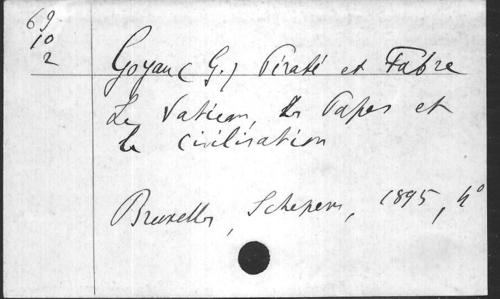 69
10
2
Goyau (G.) Pératé et Fabre
Le Vatican, les Papes et
la civilisation
Bruxelles, Schepens, 1895, 4°